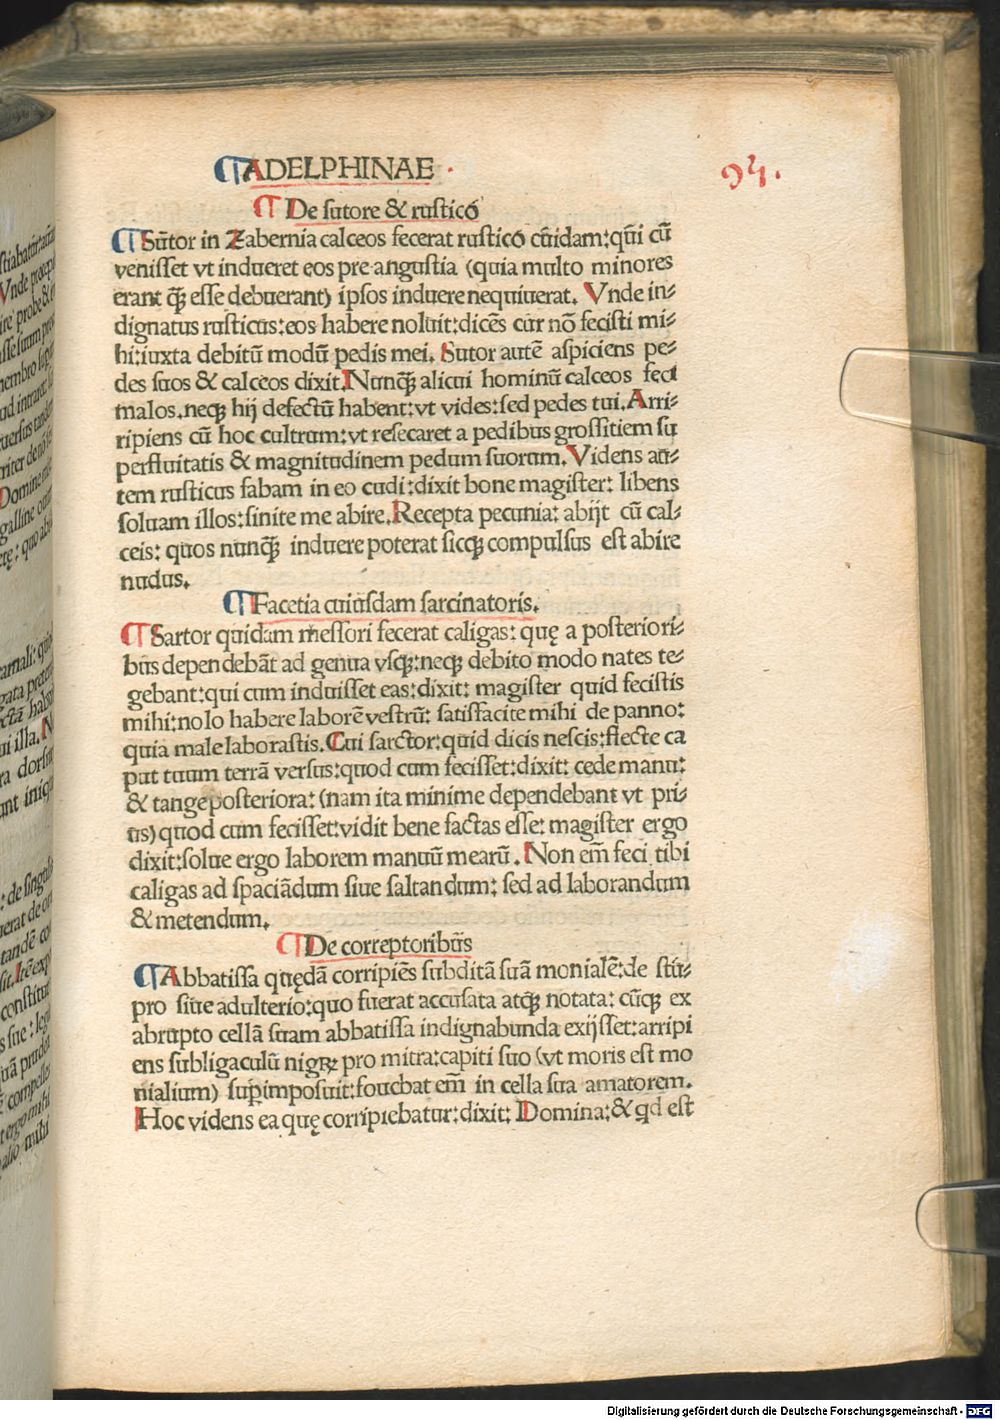 ADELPHINAE .
94.
De sutore & rustico
Sutor in Zabernia calceos fecerat rustico cuidam: qui cū
venisset vt indueret eos pre angustia (quia multo minores
erant q̄ȝ esse debuerant) ipsos induere nequiuerat. Vnde in⸗
dignatus rusticus: eos habere noluit: dicēs cur nō fecisti mi⸗
hi: iuxta debitū modū pedis mei. Sutor autē aspiciens pe⸗
des suos & calceos dixit. Nunq̄ȝ alicui hominū calceos feci
malos. neqȝ hij defectū habent: vt vides: sed pedes tui. Arri⸗
ripiens cū hoc cultrum: vt resecaret a pedibus grossitiem su
perfluitatis & magnitudinem pedum suorum. Videns au⸗
tem rusticus fabam in eo cudi: dixit bone magister: libens
soluam illos: sinite me abire. Recepta pecunia: abijt cū cal⸗
ceis: quos nunq̄ȝ induere poterat sicqȝ compulsus est abire
nudus.
Facetia cuiusdam sarcinatoris.
Sartor quidam messori fecerat caligas: quę a posteriori⸗
bus dependebāt ad genua vsqȝ: neqȝ debito modo nates te⸗
gebant: qui cum induisset eas: dixit: magister quid fecistis
mihi: nolo habere laborē vestrū: satisfacite mihi de panno:
quia male laborastis. Cui sarctor: quid dicis nescis: flecte ca
put tuum terrā versus: quod cum fecisset: dixit: cede manu:
& tange posteriora: (nam ita minime dependebant vt pri⸗
us) quod cum fecisset: vidit bene factas esse: magister ergo
dixit: solue ergo laborem manuū mearū. Non em̄ feci tibi
caligas ad spaciādum siue saltandum: sed ad laborandum
& metendum.
De correptoribus
Abbatissa quędā corripiēs subditā suā monialē: de stu⸗
pro siue adulterio: quo fuerat accusata atqȝ notata: cūqȝ ex
abrupto cellā suam abbatissa indignabunda exijsset: arripi
ens subligaculū nigrꝝ pro mitra: capiti suo (vt moris est mo
nialium) suꝑimposuit: fouebat em̄ in cella sua amatorem.
Hoc videns ea quę corripiebatur: dixit: Domina: & qd est
Digitalisierung gefördert durch die Deutsche Forschungsgemeinschaft - DFG